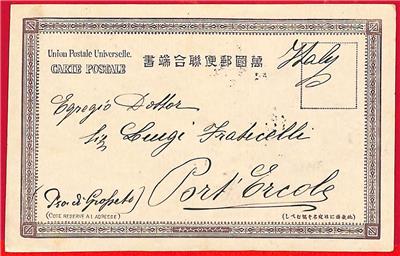 Union Postale Universelle.
CARTE POSTALE
書端合聯便郵國萬
Italy
Egregio Dottor
Sig Luigi Fraticelli
Port'Ercole
(Pro. di Grosseto)
(COTE RESERVÉ A L'ADRESSE)